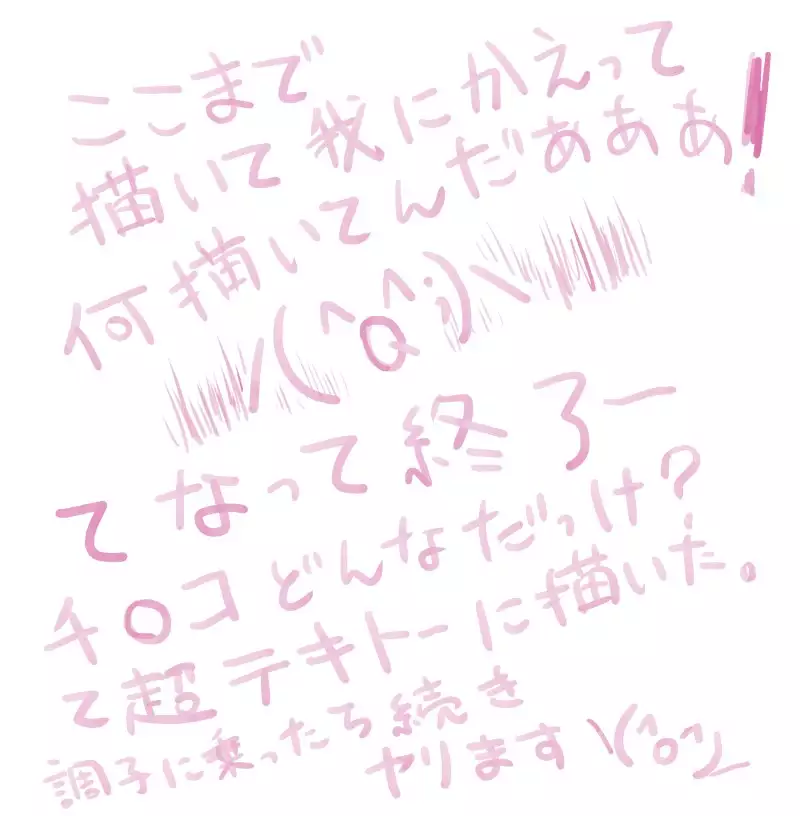 ここまで
描いて我にかえって
何描いてんだあああ！
/(^Q^;)\
てなって終了ー
チ〇コどんなだっけ？
て超テキトーに描いた。
調子に乗ったら続き
ヤリます \(^o^)/